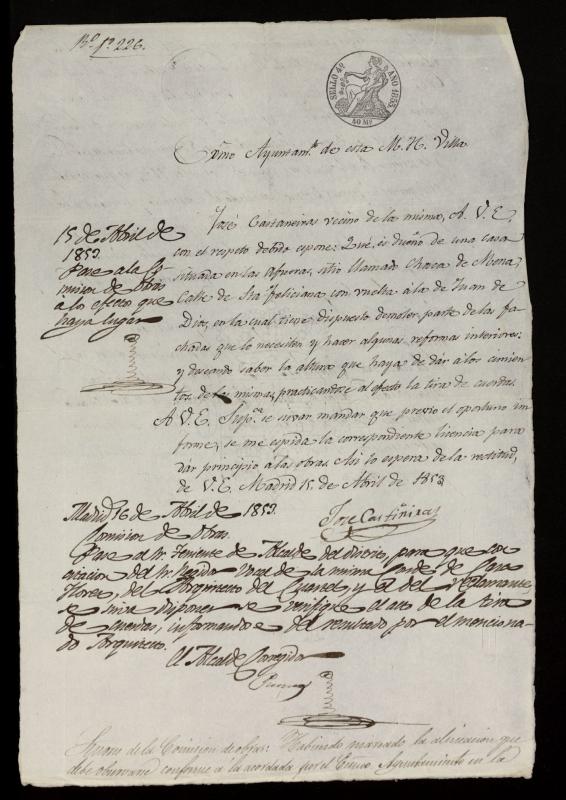 Rº 1º 226.
SELLO 4º AÑO 1853.
40 Ms
Exmo Ayuntamto de esta M. H. Villa
José Castaneiras vecino de la misma, A V. E.
con el respeto debido espone: Que, es dueño de una casa
situada en las afueras, sitio llamado Chaca de Mena
Calle de Sta Feliciana con vuelta á la de Juan de
Dios, en la cual tiene dispuesto demoler parte de las fa-
chadas que lo necesiten y hacer algunas reformas interiores;
y deseando saber la altura que haya de dár á los cimien-
tos de las mismas, practicandose al efecto la tira de cuerdas.
A V. E. Supca se sirvar mandar que previo el oportuno in-
forme, se me espida la correspondiente licencia para
dar principio á las obras. Asi lo espera de la rectitud,
de V. E. Madrid 15, de Abril de 1853
José Castiñeiras
15 de Abril de
1853.
Pase a la Co-
mision de Obras
á los efectos que
haya lugar
Madrid 16 de Abril de 1853.
Comision de Obras.
Pase al Sr. Teniente de Alcalde del distrito, para que con
citacion del Sr. Regidor Vocal de la misma Conde de Casa
Flores, del Arquitecto del Cuartel, y el del reclamante,
se sirva disponer se verifique el acto de la tira
de cuerdas, informandose del resultado por el menciona-
do Arquitecto.
El Alcalde Corregidor
Señores de la Comision de obras: Habiendo marcado la alineacion que
debe observarse conforme á la acordada por el Excmo Ayuntamiento en la